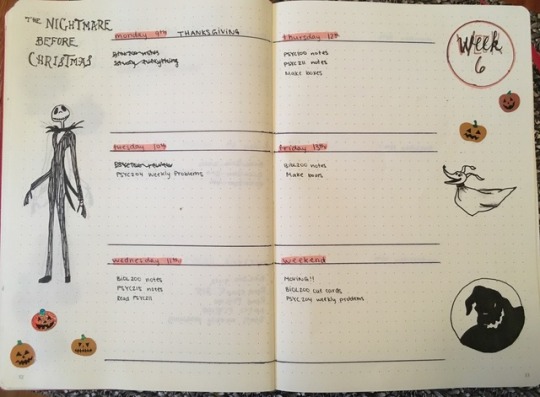 THE NIGHTMARE
BEFORE
CHRISTMAS
monday 9th THANKSGIVING
Study everything
tuesday 10th
PSYC204 weekly Problems
wednesday 11th
BIOL200 notes
PSYC205 notes
Read PSYC211
thursday 12th
PSYC100 notes
PSYC211 notes
Make boxes
friday 13th
BIOL200 notes
Make boxes
weekend
MOVING!!
BIOL200 cue cards
PSYC204 weekly problems
Week
6